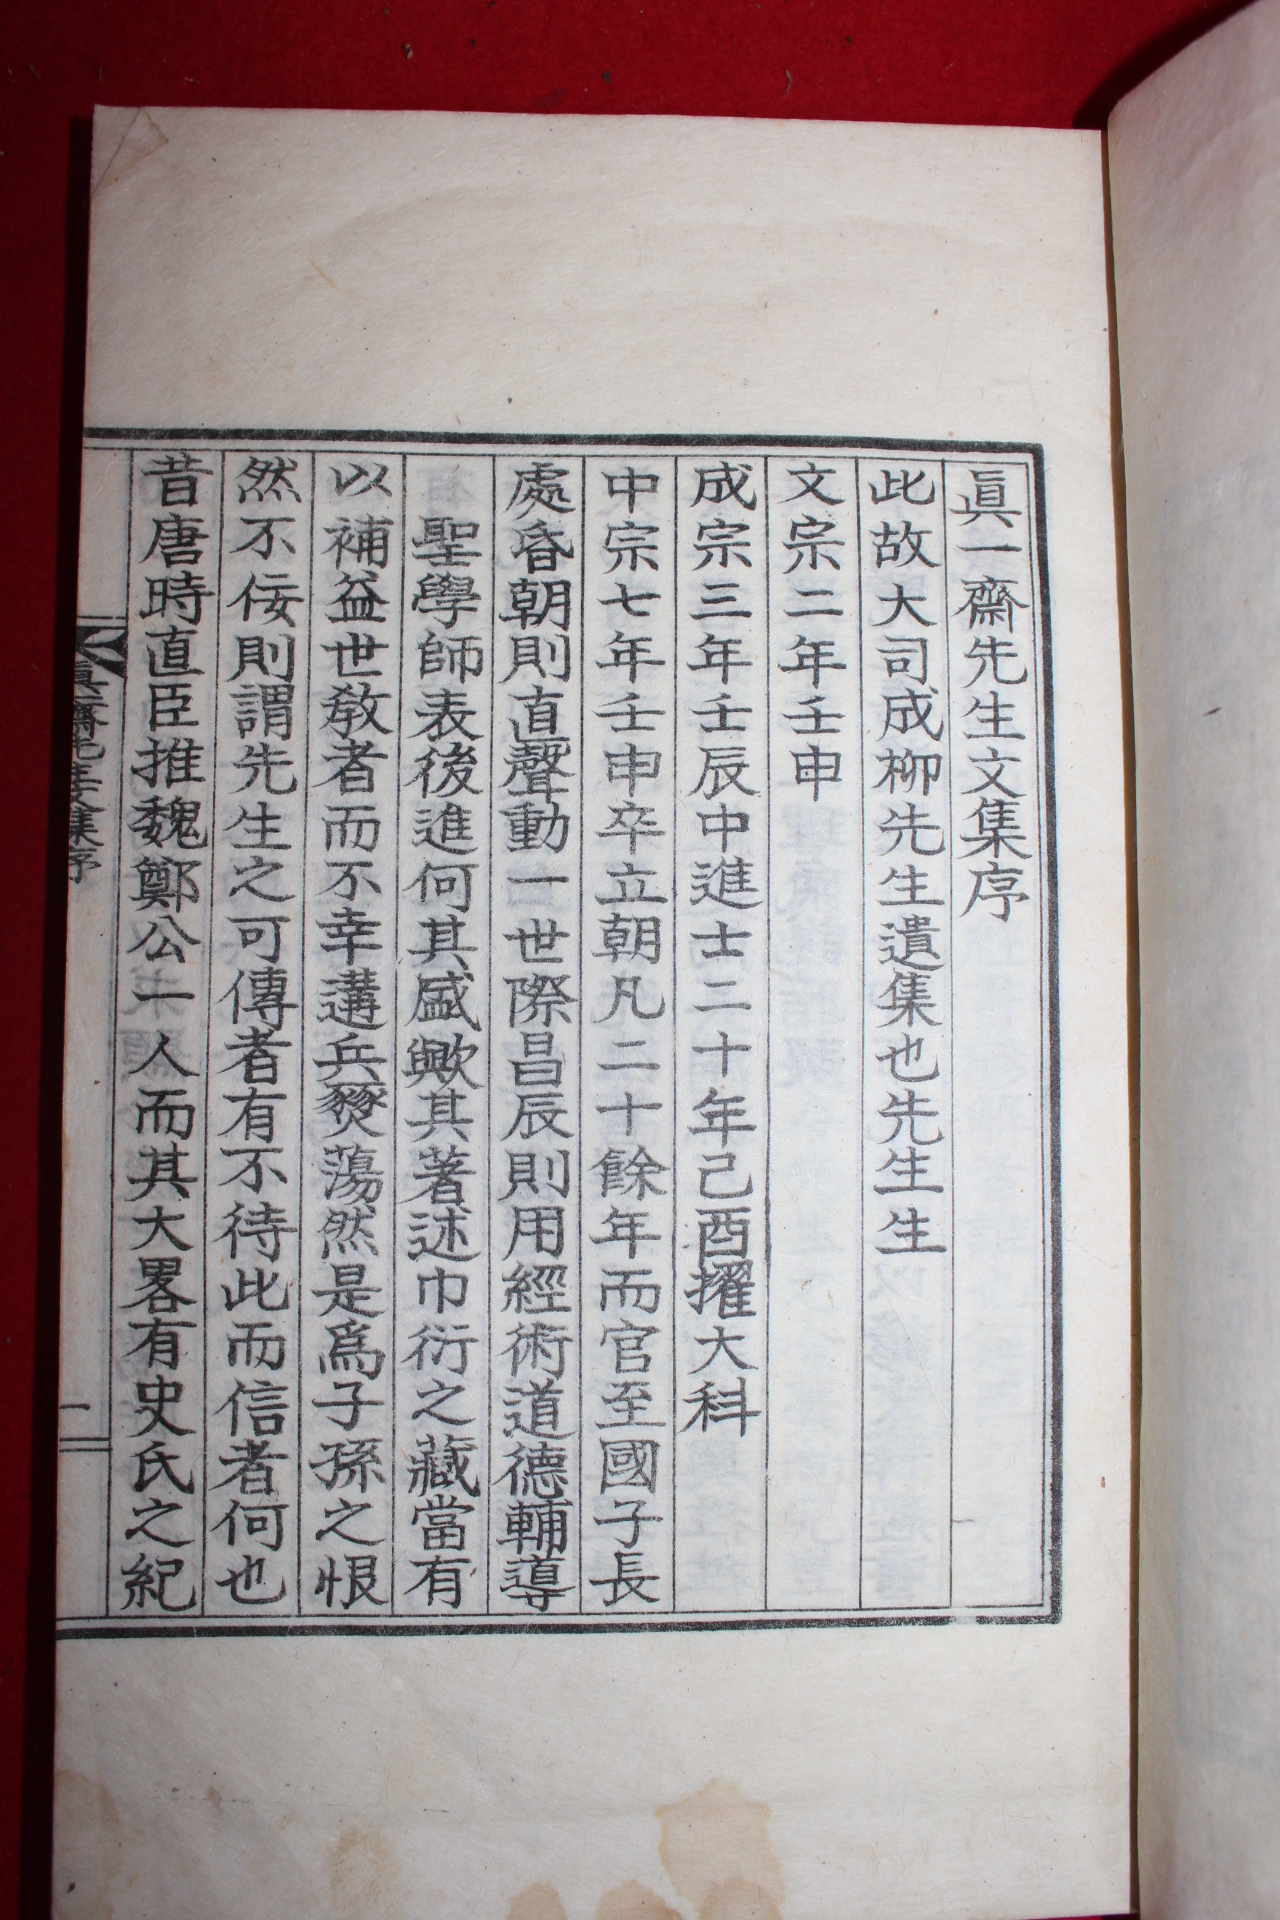 眞一齋先生文集序
此故大司成柳先生遺集也先生生
文宗二年壬申
成宗三年壬辰中進士二十年己酉擢大科
中宗七年壬申卒立朝凡二十餘年而官至國子長
處昏朝則直聲動一世際昌辰則用經術道德輔導
聖學師表後進何其盛歟其著述巾衍之藏當有
以補益世敎者而不幸遘兵燹蕩然是爲子孫之恨
然不佞則謂先生之可傳者有不待此而信者何也
昔唐時直臣推魏鄭公一人而其大畧有史氏之紀
眞一齋先生文集序
一